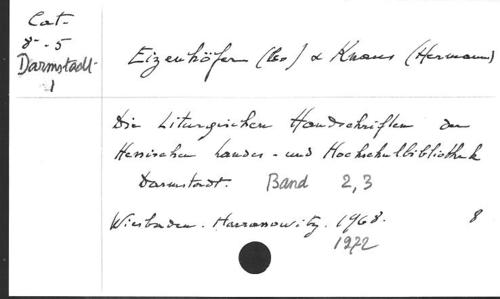 Cat.
8-5
Darmstadt-
1
Eizenhöfer (Leo) & Knaus (Hermann)
Die Liturgischen Handschriften der
Hessischen Landes- und Hochschulbibliothek
Darmstadt. Band 2,3
Wiesbaden. Harrassowitz. 1968. 8
1972